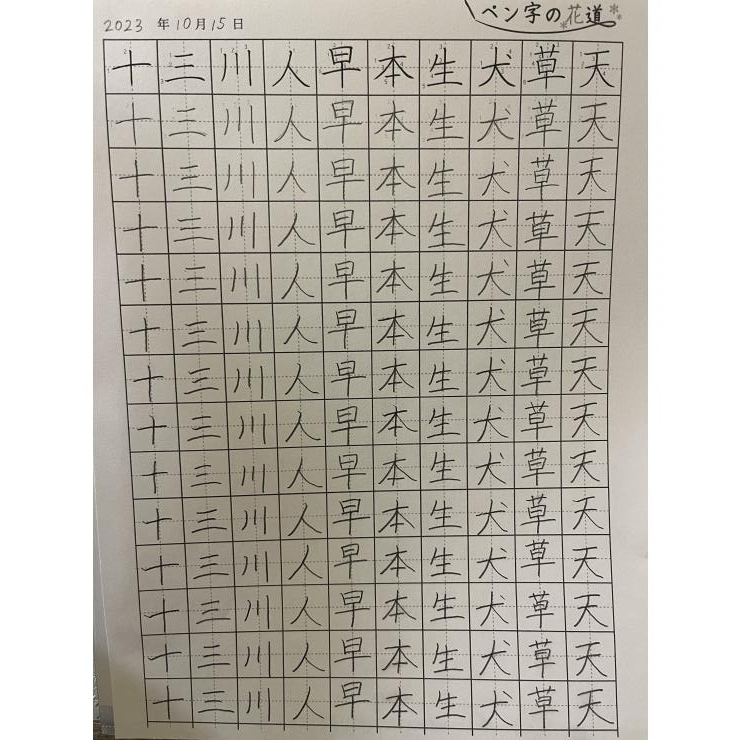 2023 年 10 月 15 日
ペン字の花道
十 三 川 人 早 本 生 犬 草 天
十 三 川 人 早 本 生 犬 草 天
十 三 川 人 早 本 生 犬 草 天
十 三 川 人 早 本 生 犬 草 天
十 三 川 人 早 本 生 犬 草 天
十 三 川 人 早 本 生 犬 草 天
十 三 川 人 早 本 生 犬 草 天
十 三 川 人 早 本 生 犬 草 天
十 三 川 人 早 本 生 犬 草 天
十 三 川 人 早 本 生 犬 草 天
十 三 川 人 早 本 生 犬 草 天
十 三 川 人 早 本 生 犬 草 天
十 三 川 人 早 本 生 犬 草 天
十 三 川 人 早 本 生 犬 草 天